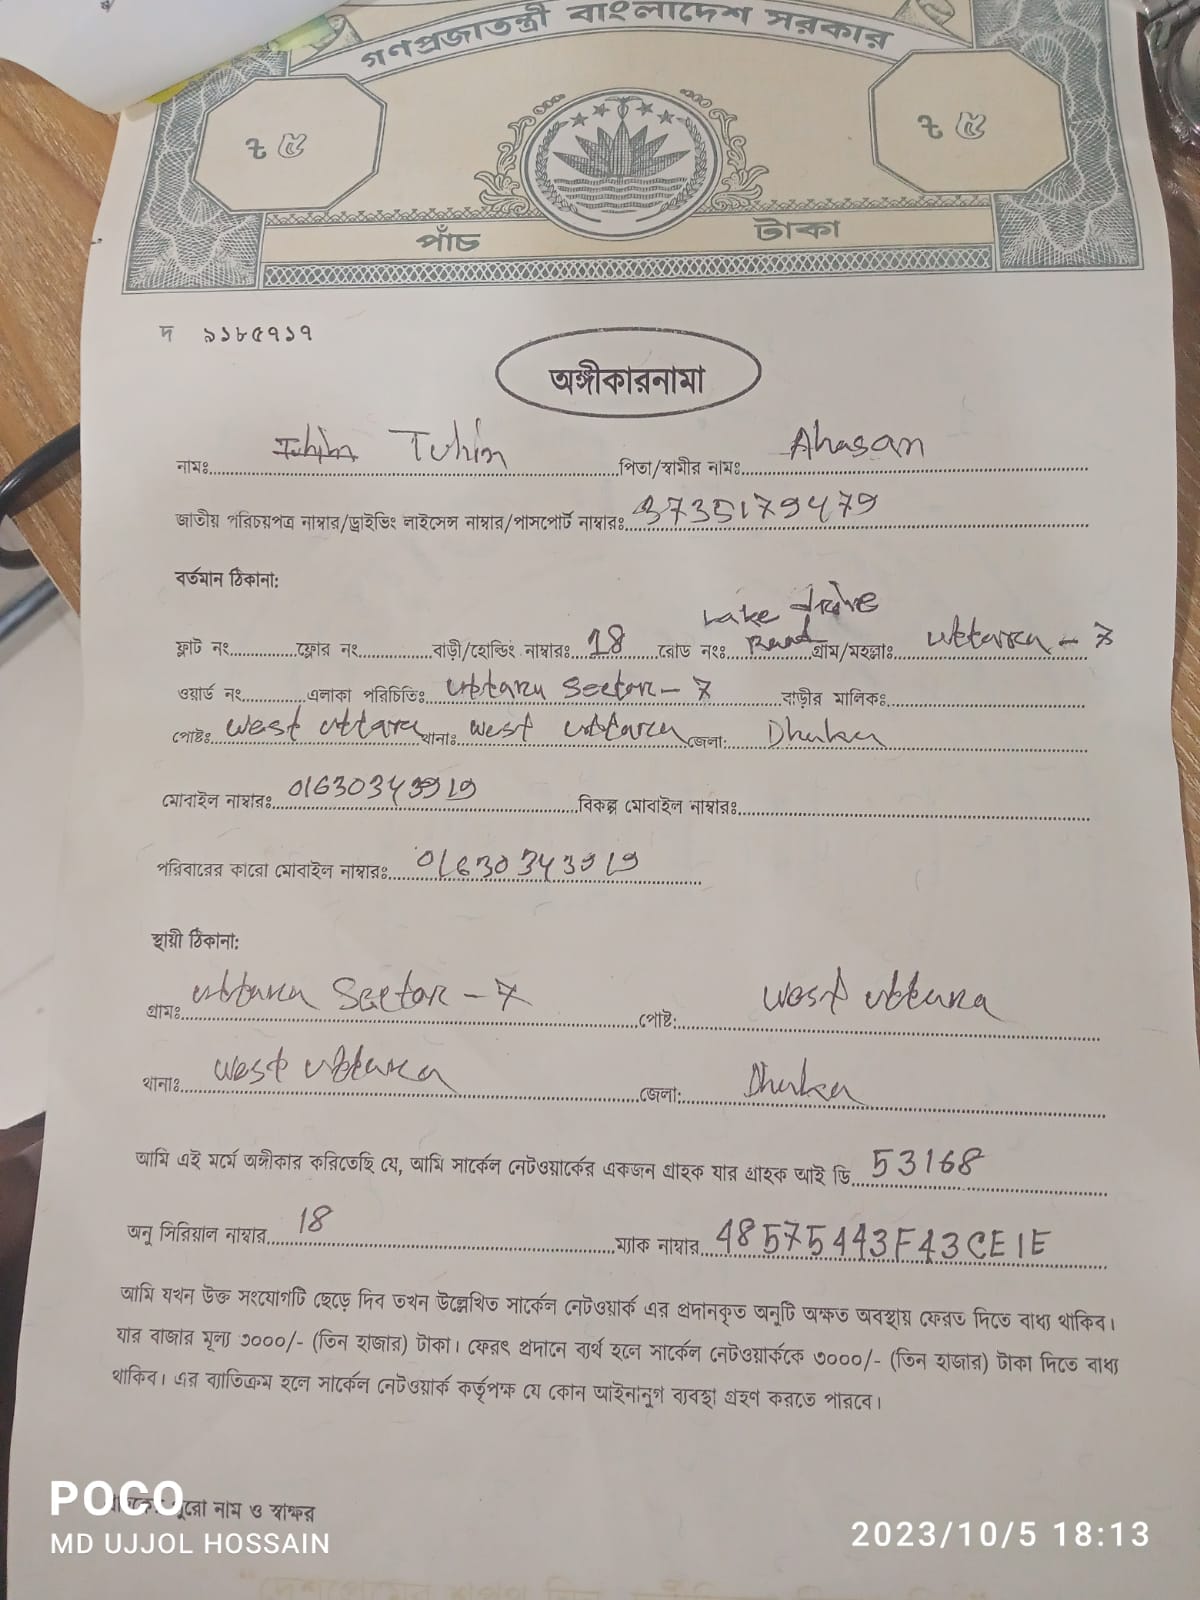 গণপ্রজাতন্ত্রী বাংলাদেশ সরকার
৳ ৫ ৳ ৫
পাঁচ টাকা
দ ৯১৮৫৭১৭
অঙ্গীকারনামা
নামঃ Tuhin পিতা/স্বামীর নামঃ Ahasan
জাতীয় পরিচয়পত্র নাম্বার/ড্রাইভিং লাইসেন্স নাম্বার/পাসপোর্ট নাম্বারঃ 3735179479
বর্তমান ঠিকানা:
Lake drive
ফ্লাট নং ফ্লোর নং বাড়ী/হোল্ডিং নাম্বারঃ 18 রোড নংঃ Road গ্রাম/মহল্লাঃ Uttara - 7
ওয়ার্ড নং এলাকা পরিচিতিঃ Uttara Sector - 7 বাড়ীর মালিকঃ
পোষ্টঃ West Uttara থানাঃ West Uttara জেলা: Dhaka
মোবাইল নাম্বারঃ 01630343919 বিকল্প মোবাইল নাম্বারঃ
পরিবারের কারো মোবাইল নাম্বারঃ 01630343919
স্থায়ী ঠিকানা:
গ্রামঃ Uttara Sector - 7 পোষ্ট: West Uttara
থানাঃ West Uttara জেলা: Dhaka
আমি এই মর্মে অঙ্গীকার করিতেছি যে, আমি সার্কেল নেটওয়ার্কের একজন গ্রাহক যার গ্রাহক আই ডি 53168
অনু সিরিয়াল নাম্বার 18 ম্যাক নাম্বার 48575443F43CE1E
আমি যখন উক্ত সংযোগটি ছেড়ে দিব তখন উল্লেখিত সার্কেল নেটওয়ার্ক এর প্রদানকৃত অনুটি অক্ষত অবস্থায় ফেরত দিতে বাধ্য থাকিব।
যার বাজার মূল্য ৩০০০/- (তিন হাজার) টাকা। ফেরৎ প্রদানে ব্যর্থ হলে সার্কেল নেটওয়ার্ককে ৩০০০/- (তিন হাজার) টাকা দিতে বাধ্য
থাকিব। এর ব্যাতিক্রম হলে সার্কেল নেটওয়ার্ক কর্তৃপক্ষ যে কোন আইনানুগ ব্যবস্থা গ্রহণ করতে পারবে।
পুরো নাম ও স্বাক্ষর
POCO
MD UJJOL HOSSAIN
2023/10/5 18:13